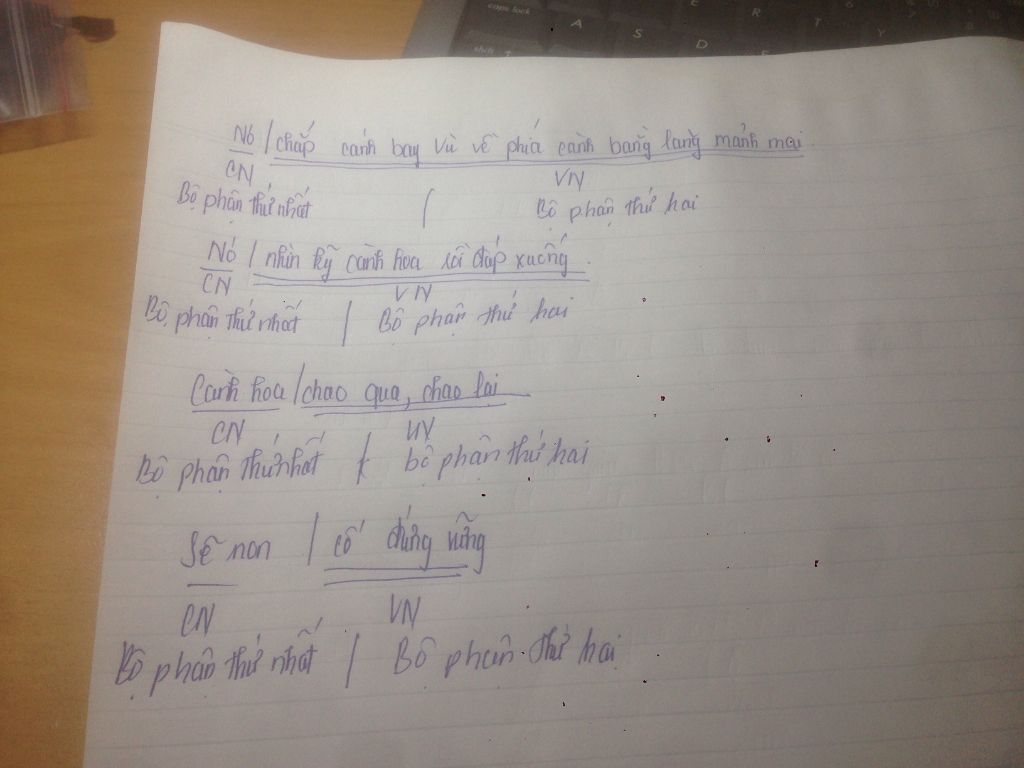 caps lock
E R T Y
A S D F
shift
Nó / chắp cánh bay vù về phía cành bằng lăng mảnh mai.
CN VN
Bộ phận thứ nhất / Bộ phận thứ hai
Nó / nhìn kỹ cành hoa rồi đáp xuống.
CN VN
Bộ phận thứ nhất / Bộ phận thứ hai
Cành hoa / chao qua, chao lại
CN VN
Bộ phận thứ nhất / bộ phận thứ hai
Sẽ non / cố đứng vững
CN VN
Bộ phận thứ nhất / Bộ phận thứ hai